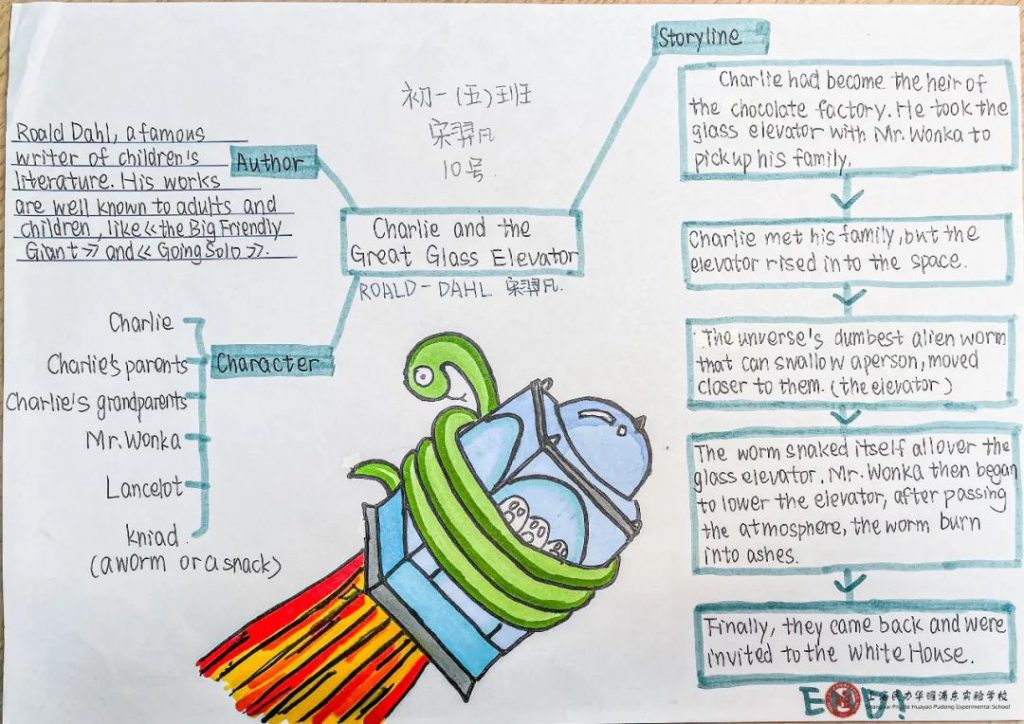 Storyline
Charlie had become the heir of
the chocolate factory. He took the
glass elevator with Mr. Wonka to
pick up his family.
Charlie met his family, but the
elevator rised into the space.
The unverse's dumbest alien worm
that can swallow a person, moved
closer to them. (the elevator)
The worm snaked itself all over the
glass elevator. Mr. Wonka then began
to lower the elevator, after passing
the atmosphere, the worm burn
into ashes.
Finally, they came back and were
invited to the White House.
初一(五)班
宋羿凡
10号
Author
Roald Dahl, a famous
writer of children's
literature. His works
are well known to adults and
children, like《the Big Friendly
Giant》and《Going Solo》.
Charlie and the
Great Glass Elevator
ROALD-DAHL 宋羿凡.
Character
Charlie
Charlie's parents
Charlie's grandparents
Mr. Wonka
Lancelot
kniad.
(a worm or a snack)
上海民办华曜浦东实验学校
Shanghai Private Huayao Pudong Experimental School